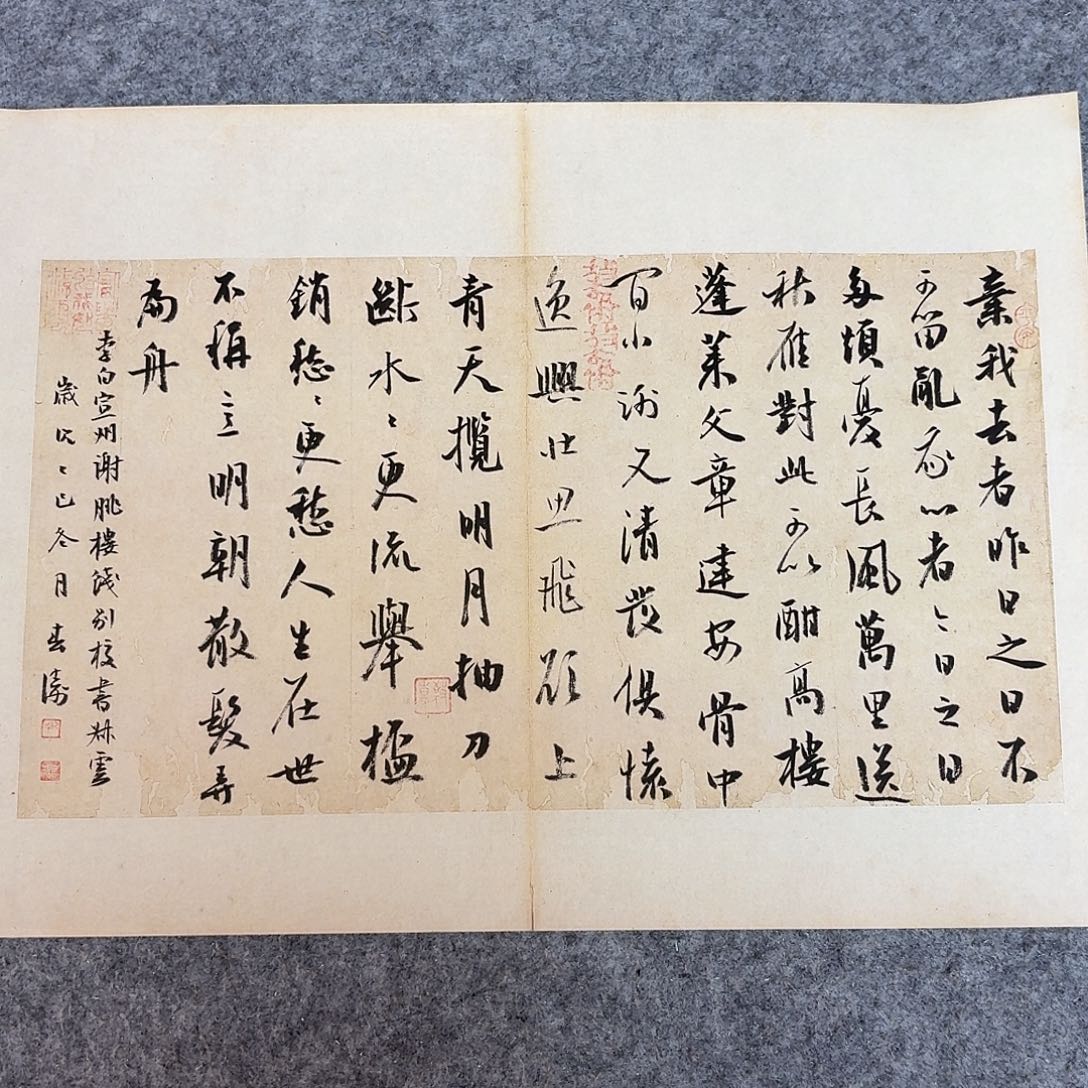 棄我去者昨日之日不
可留亂我心者今日之日
多煩憂長風萬里送
秋雁對此可以酣高樓
蓬萊文章建安骨中
間小謝又清發俱懷
逸興壯思飛欲上
青天攬明月抽刀
斷水〻更流舉
銷愁〻更愁人生在世
不稱意明朝散髮弄
扁舟
李白宣州謝朓樓餞別校書叔雲
歲次乙巳冬月